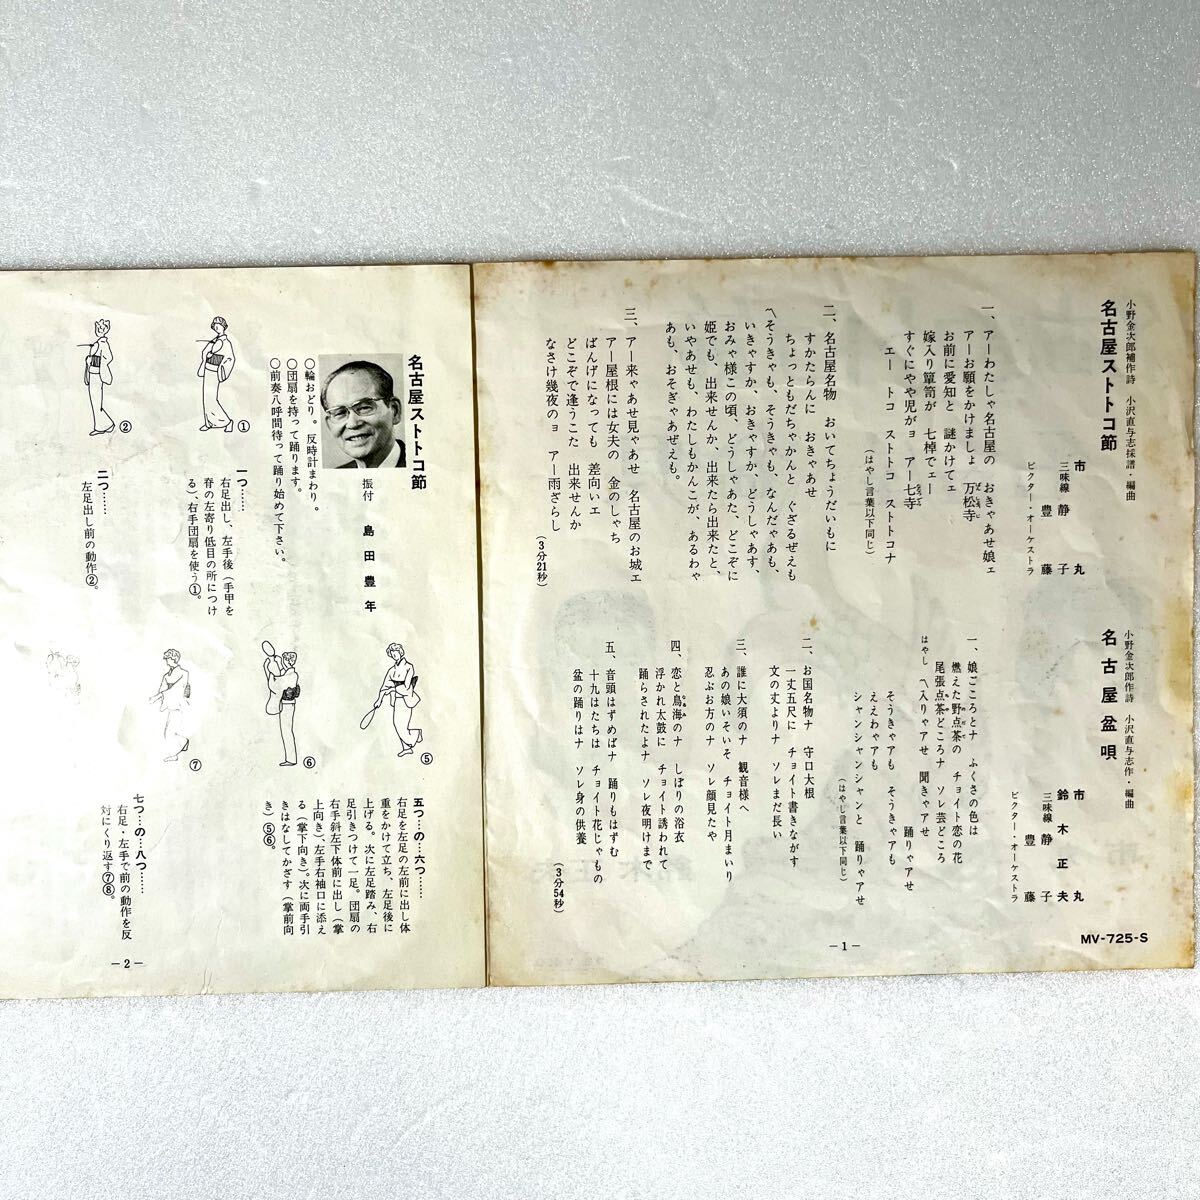 小野金次郎補作詩　小沢直与志採譜・編曲
名古屋ストトコ節
市　丸
三味線　静子
豊藤
ビクター・オーケストラ
一、アーわたしゃ名古屋の　おきゃあせ娘ェ
アーお願をかけましょ　万松寺
お前に愛知と　謎かけてェ
嫁入り簞笥が　七棹でェー
すぐにやや児がョ　アー七寺
エー　トコ　ストトコ　ストトコナ
（はやし言葉以下同じ）
二、名古屋名物　おいてちょうだいもに
すかたらんに　おきゃあせ
ちょっともだちゃかんと　ぐざるぜえも
〽そうきゃも、そうきゃも、なんだゃあも、
いきゃすか、おきゃすか、どうしゃあす、
おみゃ様この頃、どうしゃあた、どこぞに
姫でも、出来せんか、出来たら出来たと、
いやあせも、わたしもかんこが、あるわゃ
あも、おそぎゃあぜえも。
三、アー来ゃあせ見ゃあせ　名古屋のお城ェ
アー屋根には女夫の　金のしゃち
ばんげになっても　差向いェ
どこぞで逢うこた　出来せんか
なさけ幾夜のョ　アー雨ざらし
（3分21秒）
小野金次郎作詩　小沢直与志作・編曲
名古屋盆唄
市　丸
鈴木正夫
三味線　静子
豊藤
ビクター・オーケストラ
一、娘ごころとナ　ふくさの色は
燃えた野点茶の　チョイト恋の花
尾張点茶どころナ　ソレ芸どころ
はやし　〽入りゃアせ　聞きゃアせ　踊りゃアせ
そうきゃアも　そうきゃアも
ええわゃアも
シャンシャンシャンと　踊りゃアせ
（はやし言葉以下同じ）
二、お国名物ナ　守口大根
一丈五尺に　チョイト書きながす
文の丈よりナ　ソレまだ長い
三、誰に大須のナ　観音様へ
あの娘いそいそ　チョイト月まいり
忍ぶお方のナ　ソレ顔見たや
四、恋と鳥海のナ　しぼりの浴衣
浮かれ太鼓に　チョイト誘われて
踊らされたよナ　ソレ夜明けまで
五、音頭はずめばナ　踊りもはずむ
十九はたちは　チョイト花じゃもの
盆の踊りはナ　ソレ身の供養
（3分54秒）
MV-725-S
—1—
名古屋ストトコ節
振付　島田豊年
○輪おどり。反時計まわり。
○団扇を持って踊ります。
○前奏八呼間待って踊り始めて下さい。
一つ……
右足出し、左手後（手甲を
脊の左寄り低目の所につけ
る）、右手団扇を使う①。
二つ……
左足出し前の動作②。
①
②
⑤
⑥
⑦
五つ…の…六つ……
右足を左足の左前に出し体
重をかけて立ち、左足後に
上げる。次に左足踏み、右
足引きつけて一足。団扇の
右手斜左下体前に出し（掌
上向き）、左手右袖口に添え
る（掌下向き）。次に両手引
きはなしてかざす（掌前向
き）⑤⑥。
七つ…の…八つ……
右足・左手で前の動作を反
対にくり返す⑦⑧。
—2—